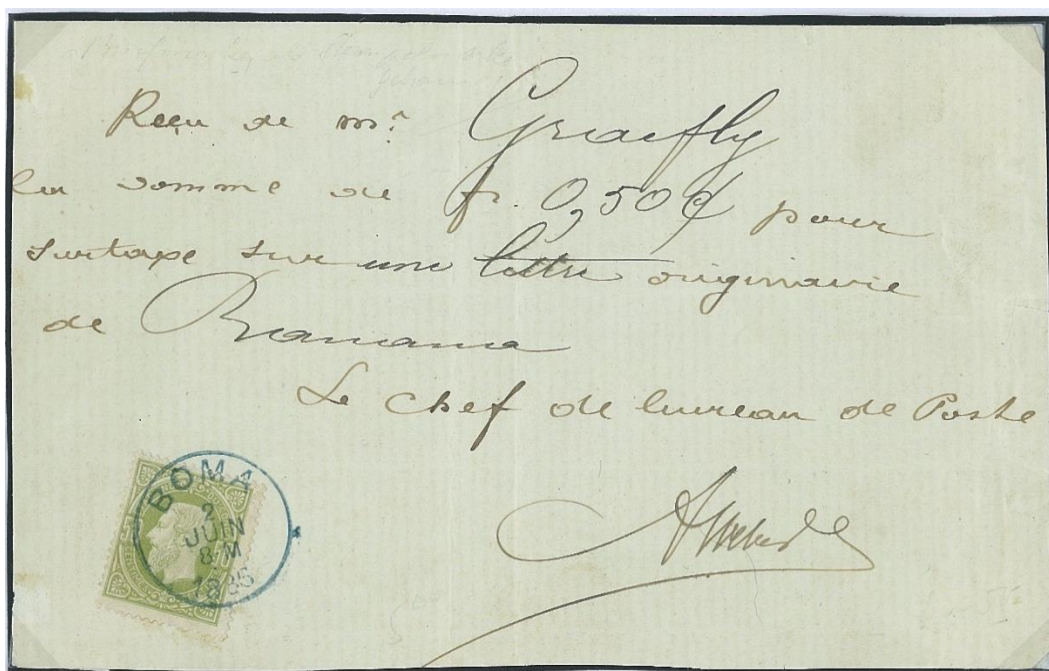 Reçu de Mr. Graefly
la somme de fr. 0,50 c pour
surtaxe sur une lettre originaire
de Banana
Le chef de bureau de Poste
BOMA
2
JUIN
8-M
1886